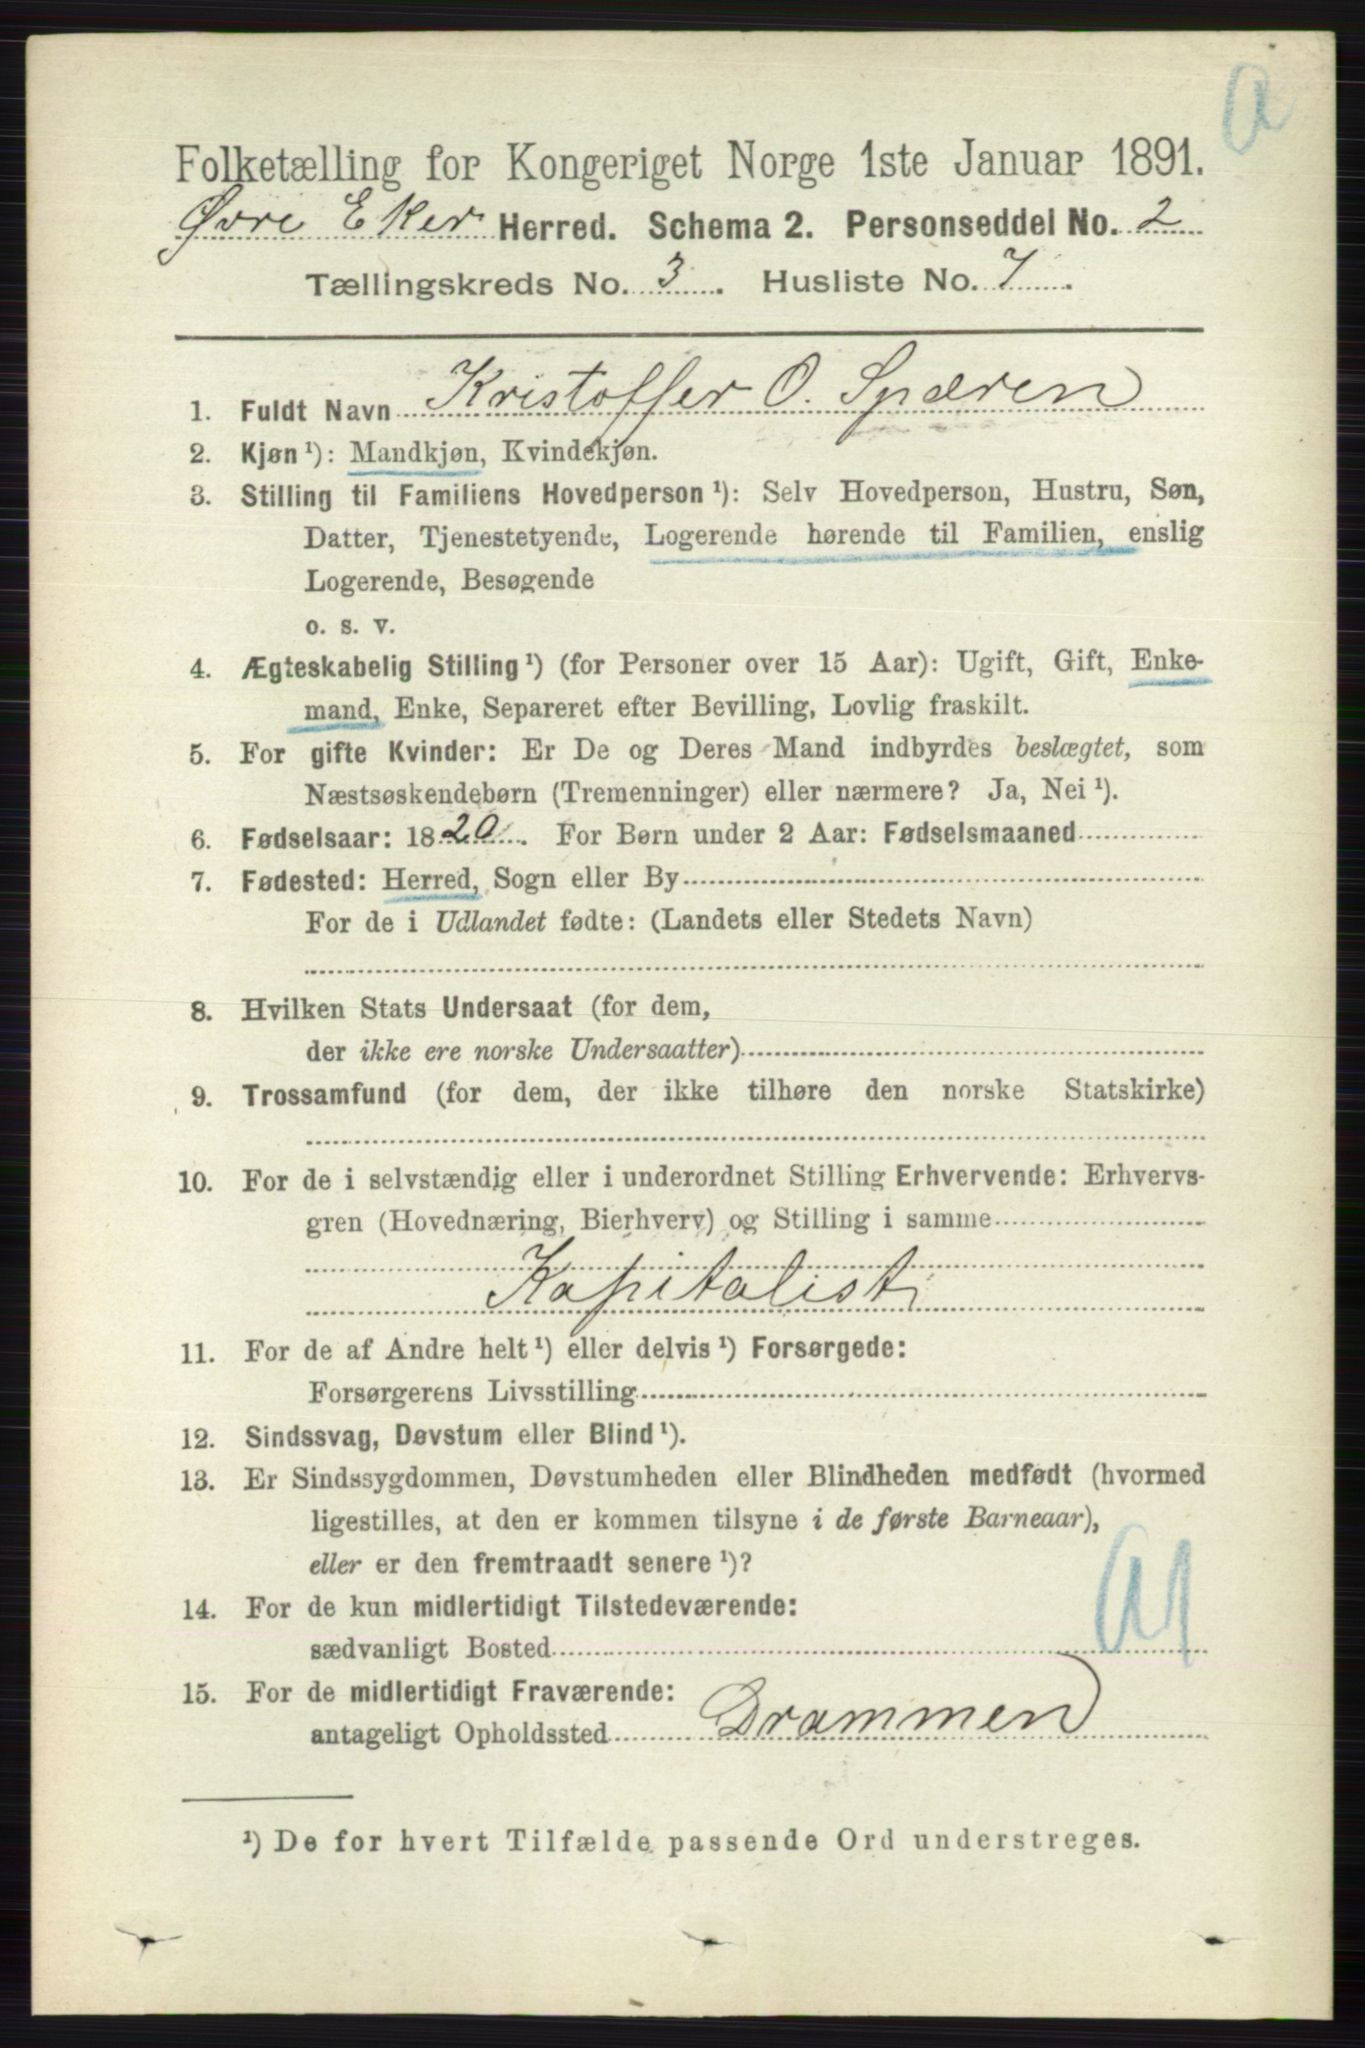 a
Folketælling for Kongeriget Norge 1ste Januar 1891.
Øvre Eker Herred. Schema 2. Personseddel No. 2
Tællingskreds No. 3. Husliste No. 7.
1. Fuldt Navn Kristoffer O. Spæren
2. Kjøn ¹): Mandkjøn, Kvindekjøn.
3. Stilling til Familiens Hovedperson ¹): Selv Hovedperson, Hustru, Søn,
Datter, Tjenestetyende, Logerende hørende til Familien, enslig
Logerende, Besøgende
o. s. v.
4. Ægteskabelig Stilling ¹) (for Personer over 15 Aar): Ugift, Gift, Enke-
mand, Enke, Separeret efter Bevilling, Lovlig fraskilt.
5. For gifte Kvinder: Er De og Deres Mand indbyrdes beslægtet, som
Næstsøskendebørn (Tremenninger) eller nærmere? Ja, Nei ¹).
6. Fødselsaar: 1820. For Børn under 2 Aar: Fødselsmaaned
7. Fødested: Herred, Sogn eller By
For de i Udlandet fødte: (Landets eller Stedets Navn)
8. Hvilken Stats Undersaat (for dem,
der ikke ere norske Undersaatter)
9. Trossamfund (for dem, der ikke tilhøre den norske Statskirke)
10. For de i selvstændig eller i underordnet Stilling Erhvervende: Erhvervs-
gren (Hovednæring, Bierhverv) og Stilling i samme
Kapitalist
11. For de af Andre helt ¹) eller delvis ¹) Forsørgede:
Forsørgerens Livsstilling
12. Sindssvag, Døvstum eller Blind ¹).
13. Er Sindssygdommen, Døvstumheden eller Blindheden medfødt (hvormed
ligestilles, at den er kommen tilsyne i de første Barneaar),
eller er den fremtraadt senere ¹)?
14. For de kun midlertidigt Tilstedeværende:
sædvanligt Bosted
15. For de midlertidigt Fraværende:
antageligt Opholdssted Drammen
¹) De for hvert Tilfælde passende Ord understreges.